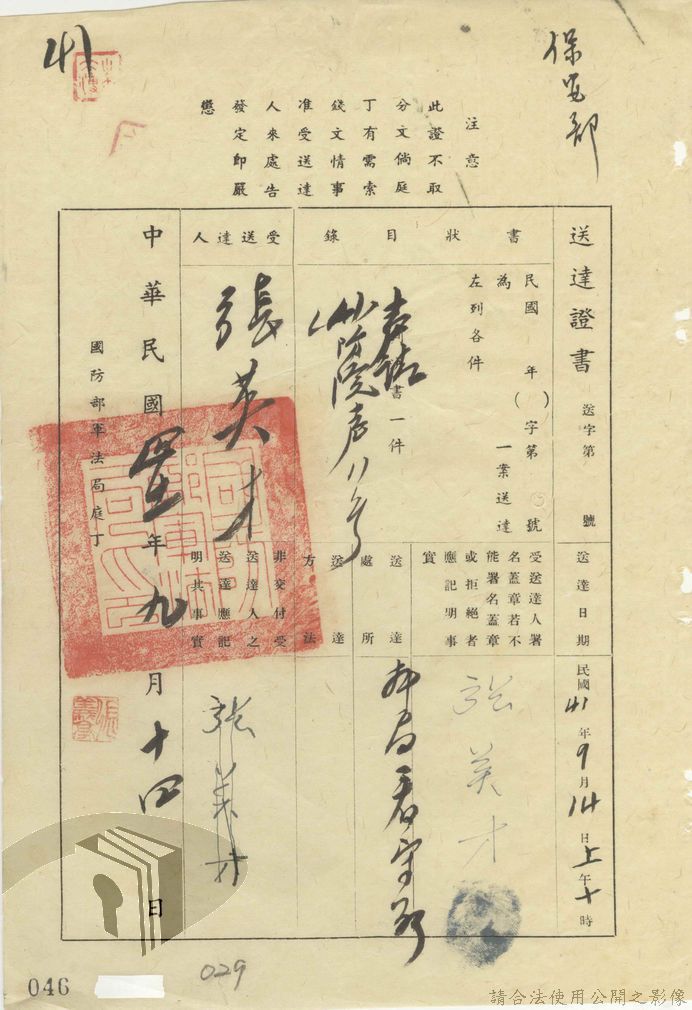 保安部
41
注意
此證不取
分文倘庭
丁有需索
錢文情事
准受送達
人來處告
發定即嚴
懲
送達證書
送字第 號
送達日期
民國41年9月14日上午十時
書狀目錄
民國 年( )字第 號
為 一案送達
左列各件
書一件
受送達人署
名蓋章若不
能署名蓋章
或拒絕者
應記明事
實
張英才
送達處所
本局看守所
送達方法
受送達人
張英才
非交付受
送達人之
送達應記
明其事實
張英才
中華民國四十一年九月十四日
國防部軍法局庭丁
046
029
請合法使用公開之影像